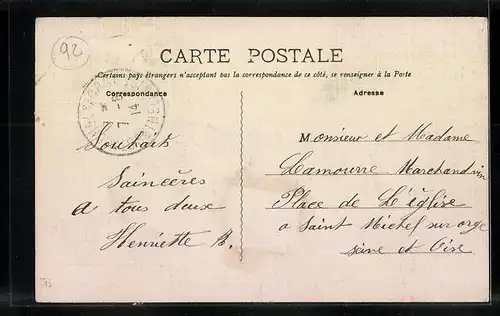 92
CARTE POSTALE
Certains pays étrangers n'acceptent pas la correspondance de ce côté, se renseigner à la Poste
Correspondance
Adresse
Souhaits
Saincères
a tous deux
Henriette B.
Monsieur et Madame
Lamourre Marchand vin
Place de L'église
a Saint Michel sur orge
seine et Oise